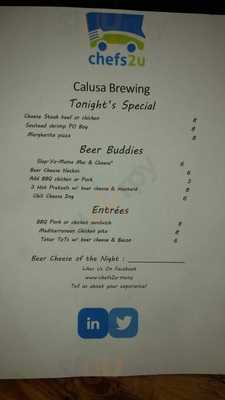 chefs2u
Calusa Brewing
Tonight's Special
Cheese Steak beef or chicken 8
Seafood shrimp PO Boy 8
Margherita pizza 8
Beer Buddies
Slap-Yo-Mama Mac & Cheese* 6
Beer Cheese Nachos 6
Add BBQ chicken or Pork 3
3 Hot Pretzels w/ beer cheese & mustard 8
Chili Cheese Dog 6
Entrées
BBQ Pork or chicken sandwich 8
Mediterranean Chicken pita 8
Tater ToTs w/ beer cheese & Bacon 6
Beer Cheese of the Night :
Likes Us On Facebook
www.chefs2u
Tell us about your experience!
in